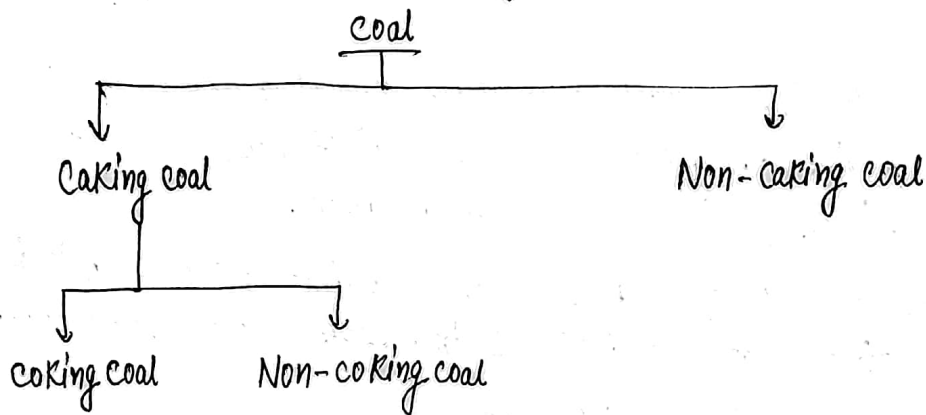 Coal
Caking coal
Non-caking coal
coking coal
Non-coking coal